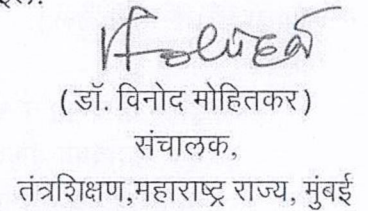 (डॉ. विनोद मोहितकर)
संचालक,
तंत्रशिक्षण,महाराष्ट्र राज्य, मुंबई